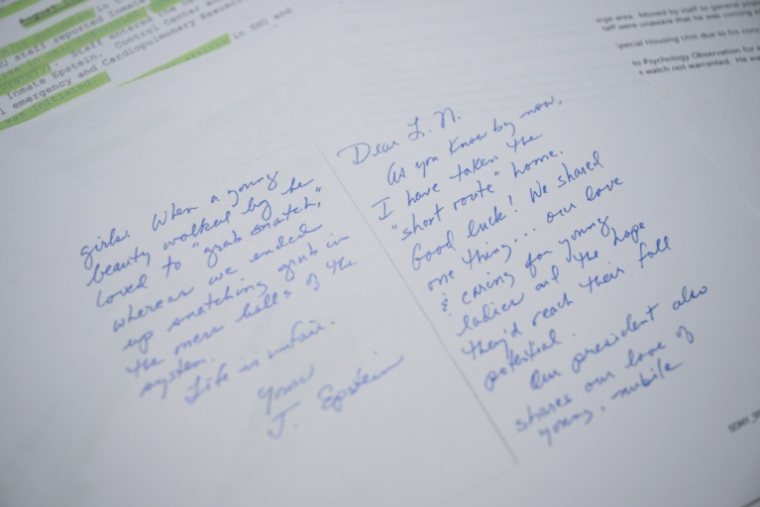 U staff reported Inmate
staff entered the
Inmate Epstein. Control Center
emergency and Cardiopulmonary
in SHU and
area. Moved by staff to general
were unaware that he was coming
Housing Unit due to his
to Psychology Observation for
watch not warranted. He
Dear L.N.
As you know by now,
I have taken the
"short route" home.
Good luck! We shared
one thing... our love
& caring for young
ladies and the hope
they'd reach their full
potential.
Our president also
shares our love of
young, nubile
girls. When a young
beauty walked by he
loved to "grab snatch,"
whereas we ended
up snatching grub in
the mess halls of the
system.
Life is unfair.
Yours
J. Epstein